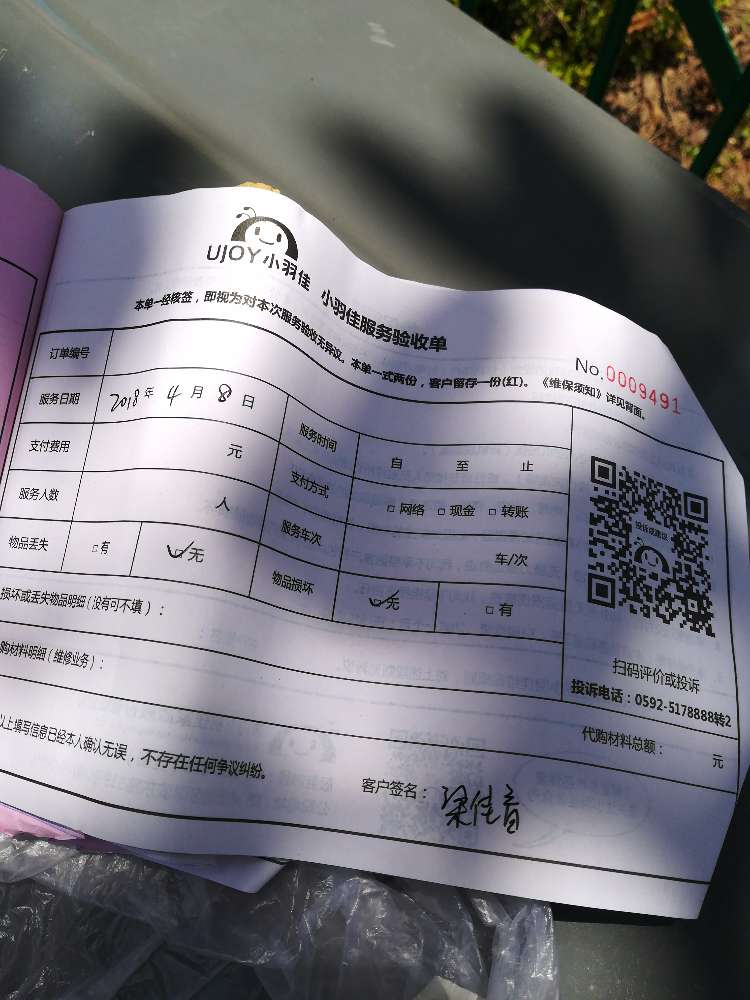 UJOY小羽佳 小羽佳服务验收单
本单一经核签，即视为对本次服务验收无异议。本单一式两份，客户留存一份(红)。《维保须知》详见背面。
No.0009491
订单编号
服务日期 2018年 4月 8日 服务时间 自 至 止
支付费用 元 支付方式 □网络 □现金 □转账
服务人数 人 服务车次 车/次
物品丢失 □有 ☑无 物品损坏 ☑无 □有
投诉或建议
扫码评价或投诉
投诉电话：0592-5178888转2
损坏或丢失物品明细（没有可不填）：
购材料明细（维修业务）：
代购材料总额： 元
以上填写信息已经本人确认无误，不存在任何争议纠纷。
客户签名：梁佳音